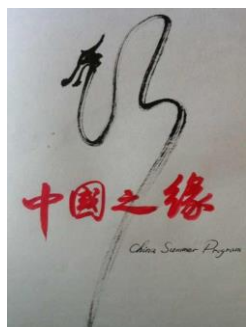 中國之缘
China Summer Program